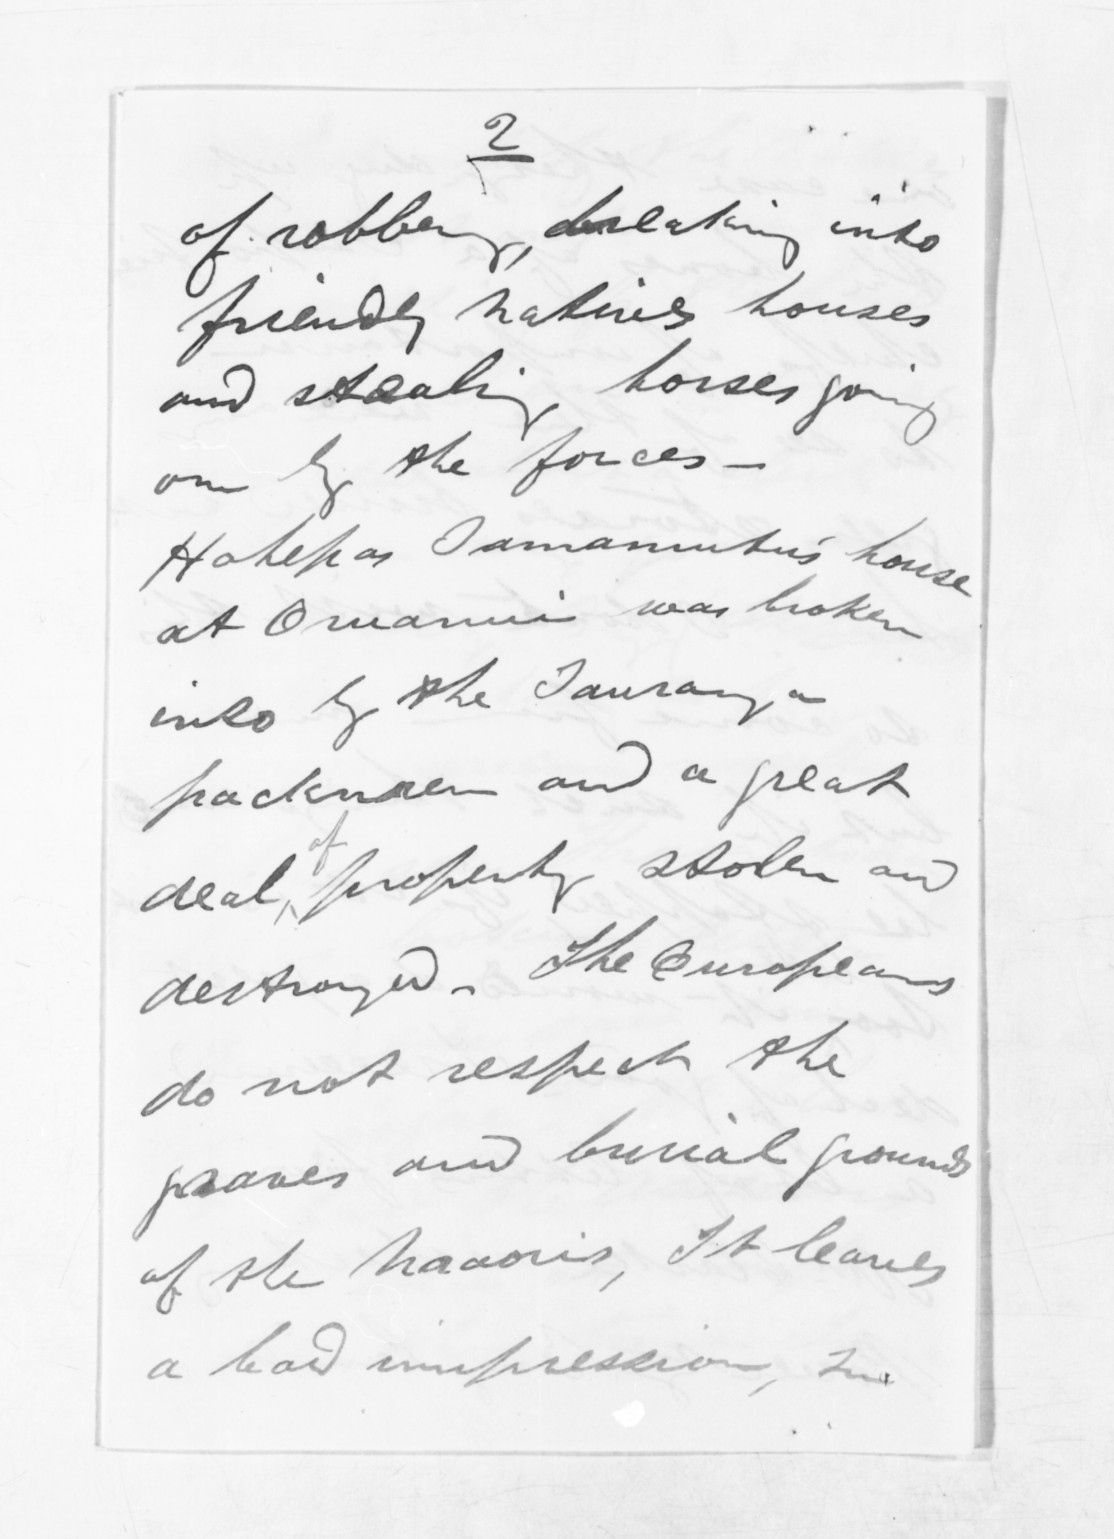 2
of robbery, breaking into
friendly natives houses
and stealing horses going
on by the forces —
Hohepas Tamamutu's house
at Oruanui was broken
into by the Tauranga
packmen and a great
deal, of property stolen and
destroyed. The Europeans
do not respect the
graves and burial grounds
of the Maoris, It leaves
a bad impression, In